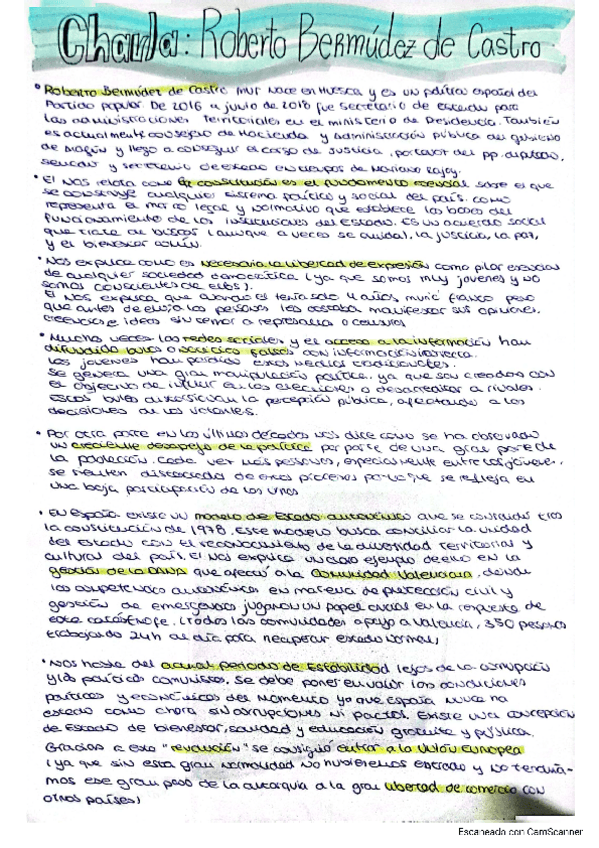 Charla: Roberto Bermúdez de Castro
• Roberto Bermúdez de Castro Mur nace en Huesca y es un político español del
Partido popular. De 2016 a junio de 2018 fue secretario de estado para
las administraciones Territoriales en el ministerio de Presidencia. También
es actualmente consejero de Hacienda y administración pública del gobierno
de Aragón y llegó a conseguir el cargo de Justicia, portavoz del pp. diputado,
senador y secretario de estado en tiempos de Mariano Rajoy.
• El nos relata como la constitución es el fundamento esencial sobre el que
se construye cualquier sistema político y social del país. como
representa el marco legal y normativo que establece las bases del
funcionamiento de las instituciones del Estado. Es un acuerdo social
que trata de buscar (aunque a veces se olvida), la justicia, la paz,
y el bienestar común.
• Nos explica como es necesaria la libertad de expresión como pilar esencial
de cualquier sociedad democrática (ya que somos muy jovenes y no
somos conscientes de ello).
El nos explica que cuando el tenía solo 4 años murió franco pero
que antes de ello las personas les costaba manifestar sus opiniones,
creencias e ideas sin temor a represalia o censura
• Muchas veces las redes sociales y el acceso a la información han
difundido bulos o noticias falsas con información incorrecta.
Los jovenes han perdido
se genera una gran manipulación política. ya que son creados con
el objetivo de influir en las elecciones o desacreditar a rivales.
Estos bulos distorsionan la percepción pública, afectando a las
decisiones de los votantes.
• Por otra parte en las últimas décadas nos dice como se ha observado
un creciente desapego de la política por parte de una gran parte de
la población. Cada vez más personas, especialmente entre los jóvenes,
se sienten distanciados de por lo que se refleja en
una baja participación de los
• En España existe un modelo de Estado autonómico que se consolidó tras
la constitución de 1978. Este modelo busca conciliar la unidad
del Estado con el reconocimiento de la diversidad territorial y
cultural del país. El nos explica un claro ejemplo de ello en la
gestión de la DANA que afectó a la Comunidad Valenciana, donde
las competencias autonómicas en materia de protección civil y
gestión de emergencias jugaron un papel crucial en la respuesta de
esta catástrofe. (Todas las comunidades apoyo a Valencia, 350 personas
trabajando 24h al día para recuperar estado normal)
• Nos habla del actual periodo de Estabilidad lejos de la corrupción
y las políticas comunistas. Se debe poner en valor las condiciones
políticas y económicas del momento ya que España nunca ha
estado como ahora sin corrupciones ni pactos. Existe una concepción
de Estado de bienestar, sanidad y educación gratuita y pública.
Gracias a esta "revolución" se consiguió entrar a la Unión Europea
(ya que sin esta gran normalidad no hubieramos entrado y no tendría-
mos ese gran peso de la autarquía a la gran libertad de comercio con
otros países)
Escaneado con CamScanner